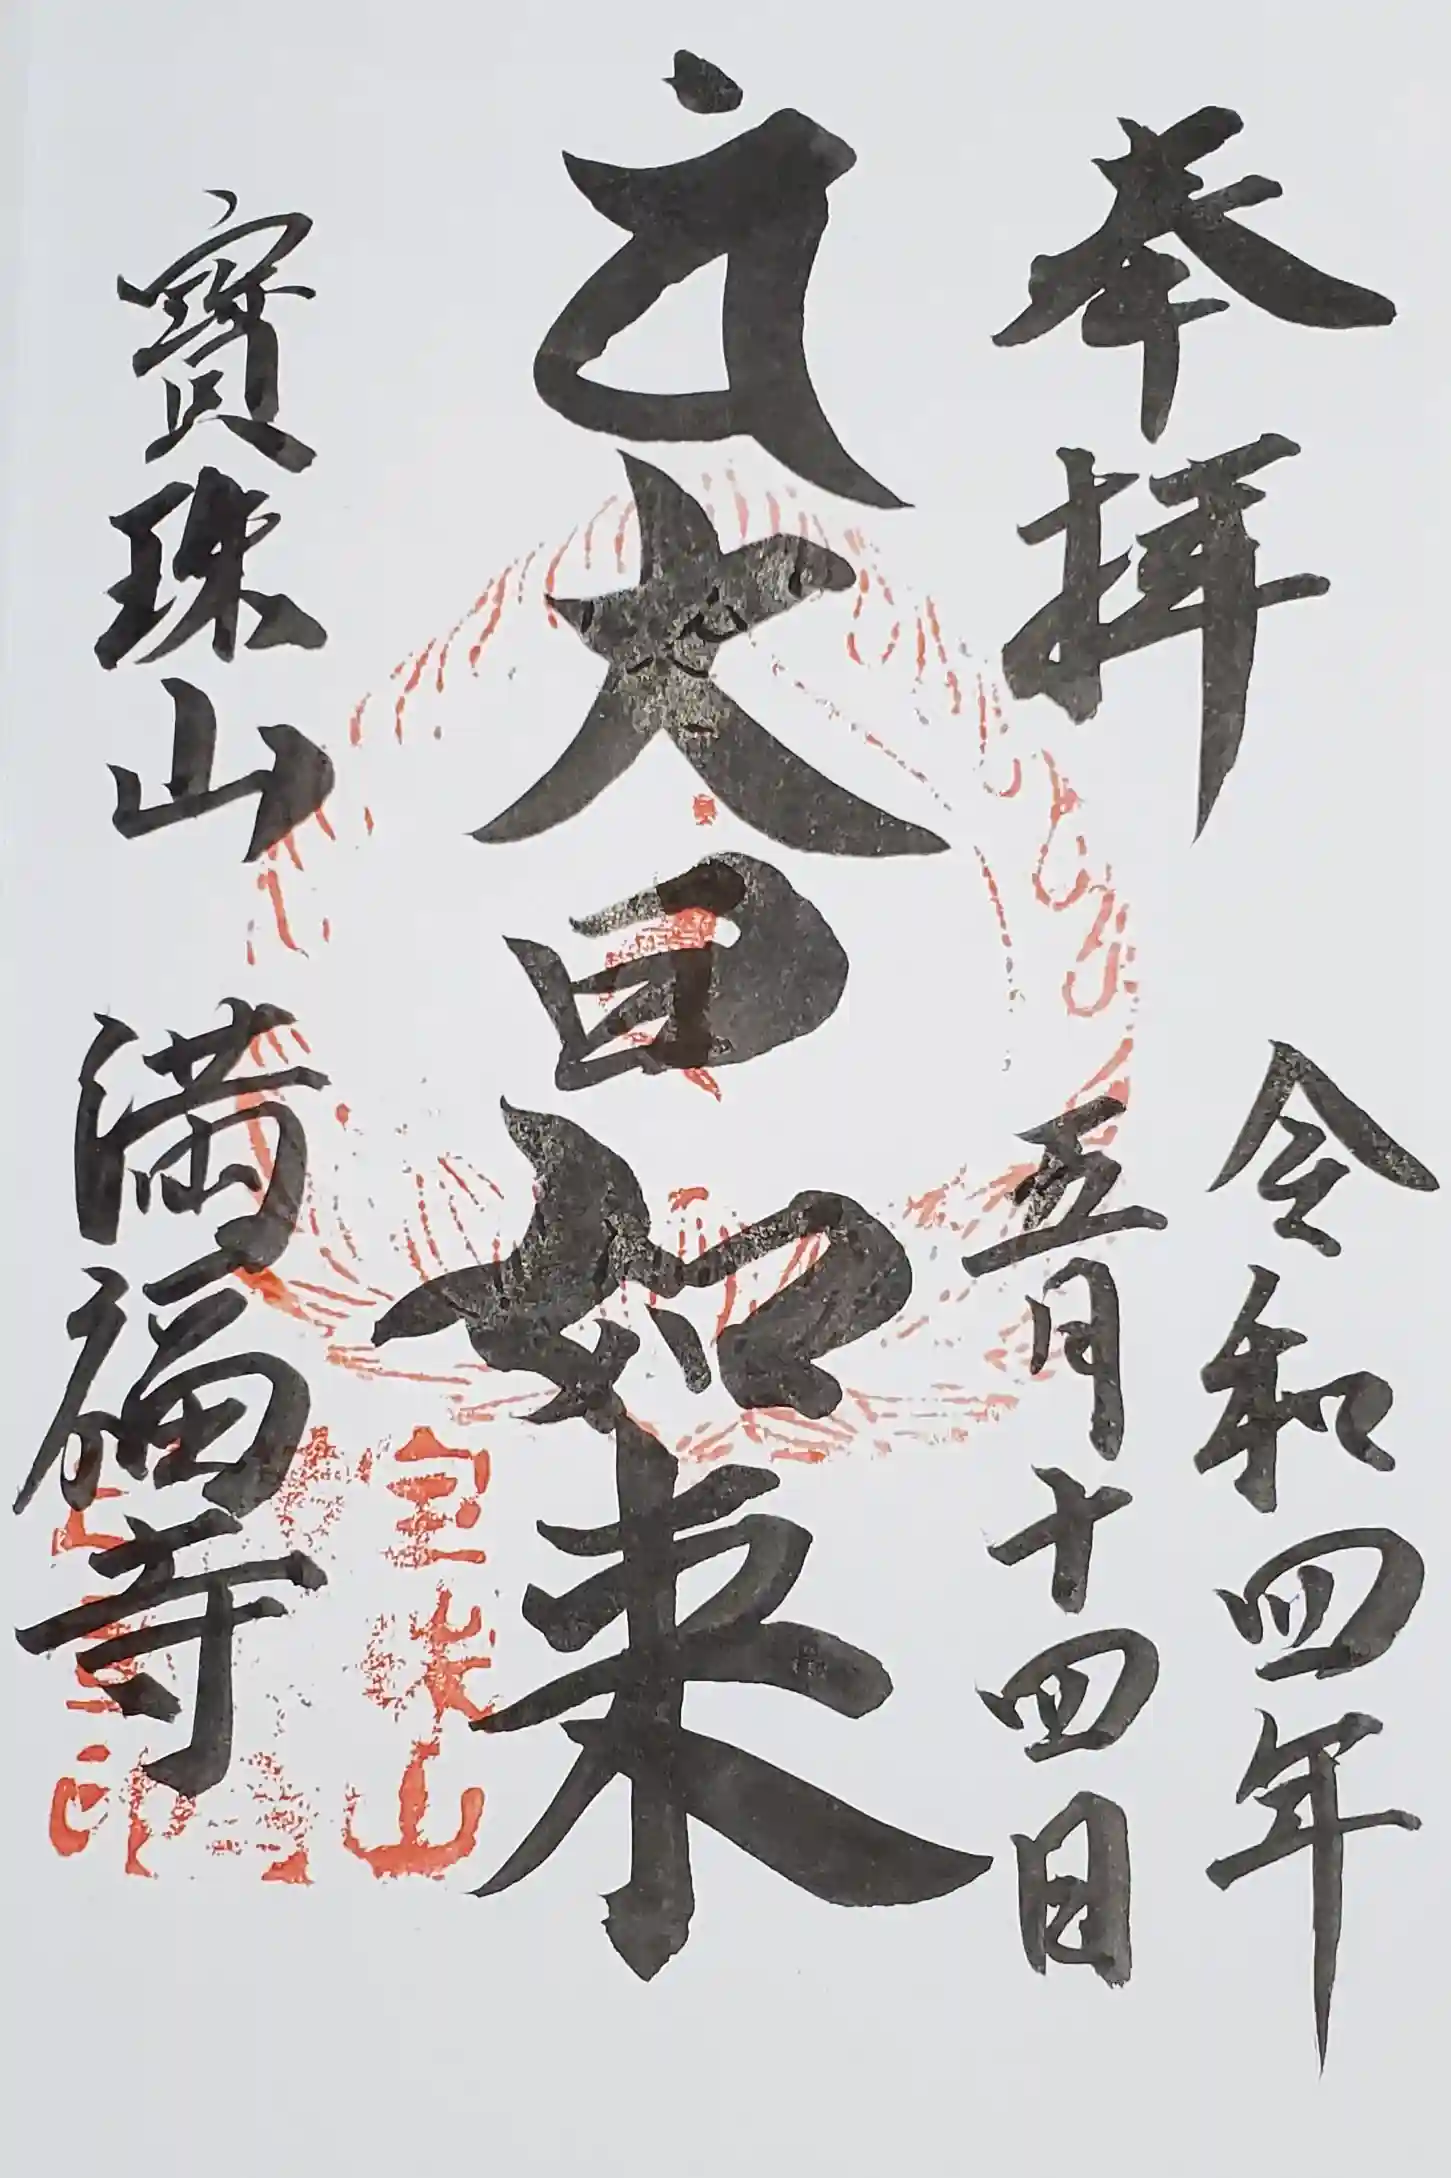 奉拝
令和四年
五月十四日
大日如来
寳珠山
満福寺
宝珠山